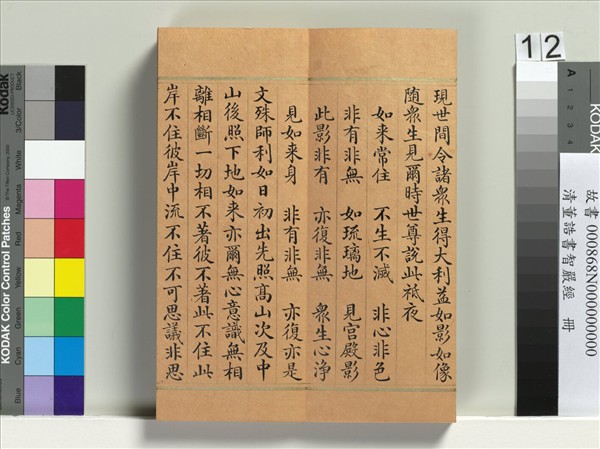 現世間令諸衆生得大利益如影如像
随衆生見爾時世尊說此祇夜
如来常住 不生不滅 非心非色
非有非無 如琉璃地 見宮殿影
此影非有 亦復非無 衆生心淨
見如来身 非有非無 亦復亦是
文殊師利如日初出先照髙山次及中
山後照下地如来亦爾無心意識無相
離相斷一切相不著彼不著此不住此
岸不住彼岸中流不住不可思議非思
12
A
1
2
3
4
KODAK
故書 000868N000000000
清董誥書智嚴經 冊
Kodak
KODAK Color Control Patches
Black
3/Color
White
Magenta
Red
Yellow
Green
Cyan
Blue